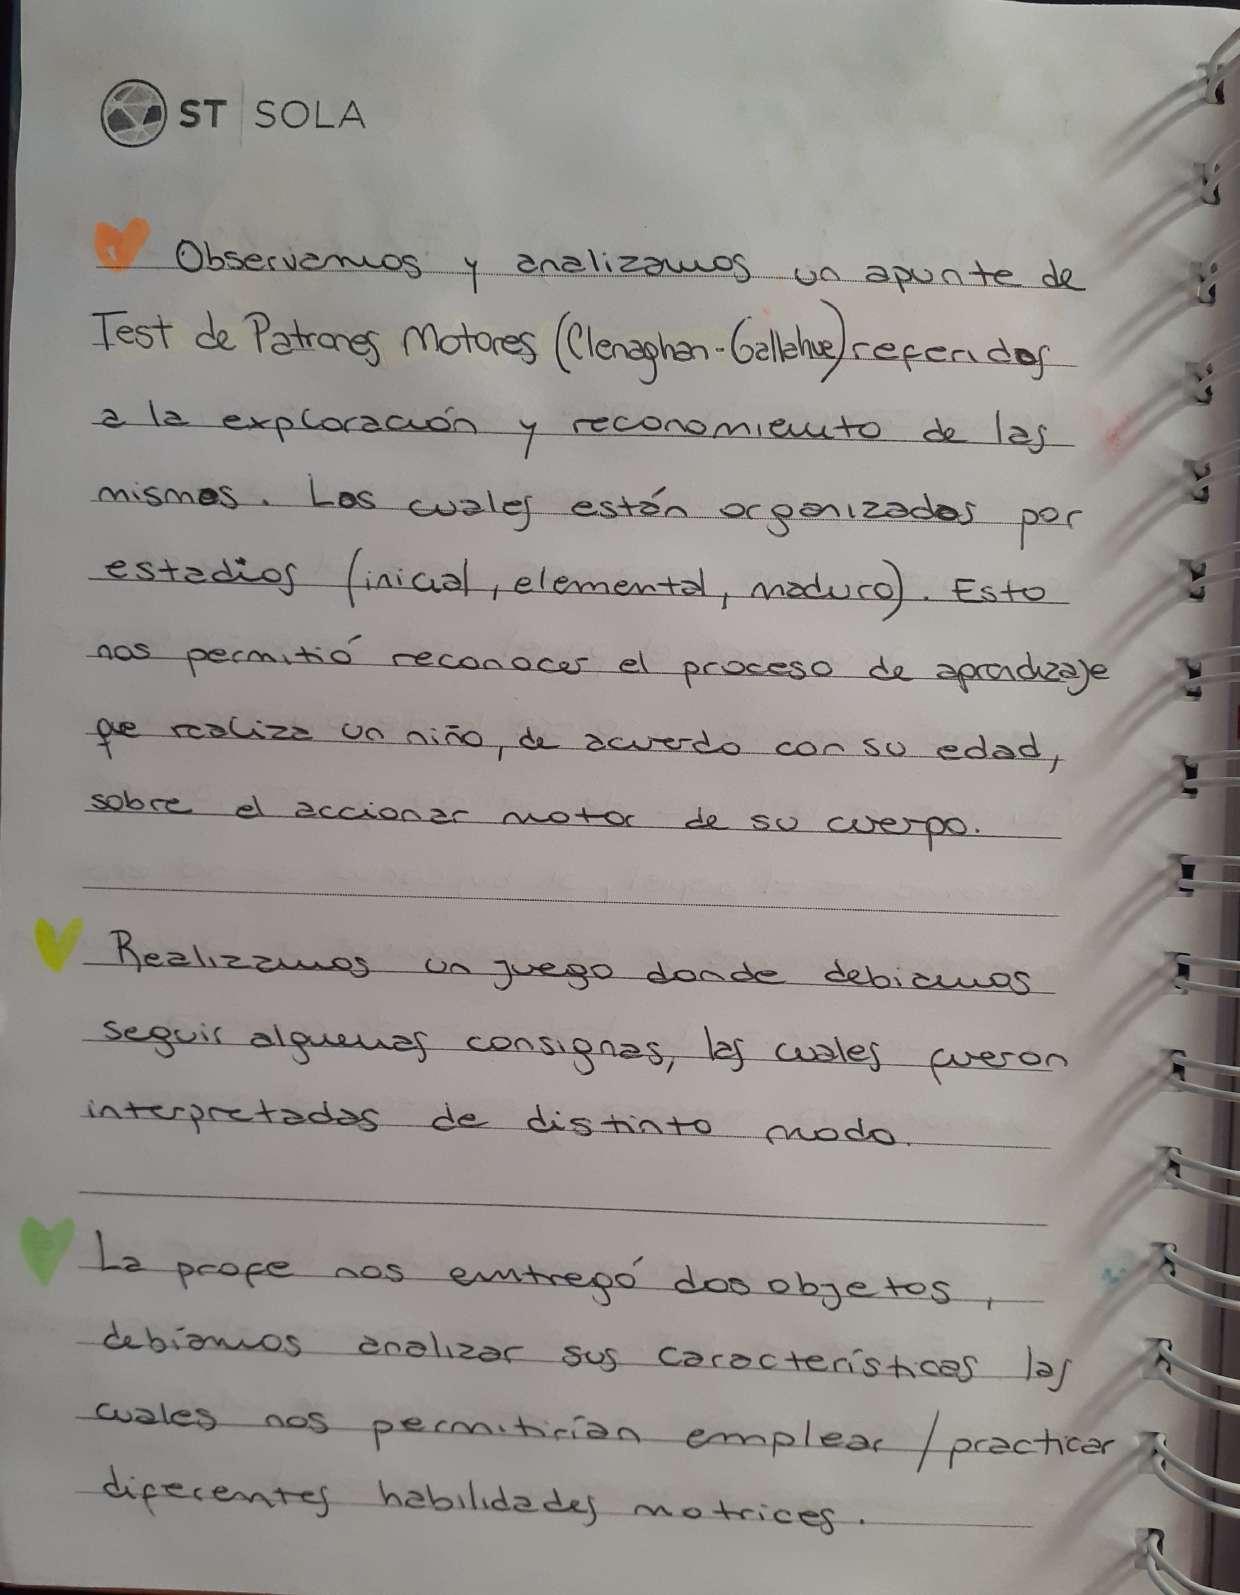 ST SOLA
Observamos y analizamos un apunte de
Test de Patrones Motores (Clenaghan-Gallahue) referidos
a la exploración y reconomiento de las
mismas. Las cuales están organizadas por
estadios (inicial, elemental, maduro). Esto
nos permitió reconocer el proceso de aprendizaje
que realiza un niño, de acuerdo con su edad,
sobre el accionar motor de su cuerpo.
Realizamos un juego donde debiamos
seguir alguenas consignas, las cuales fueron
interpretadas de distinto modo.
La profe nos entregó dos objetos,
debíamos analizar sus características las
cuales nos permitirían emplear / practicar
diferentes habilidades motrices.